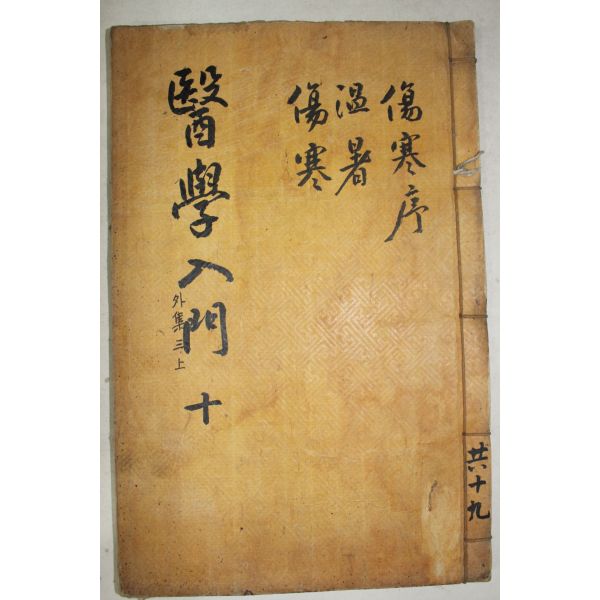 傷寒序
温暑
傷寒
醫學入門 十
外集 三上
共十九